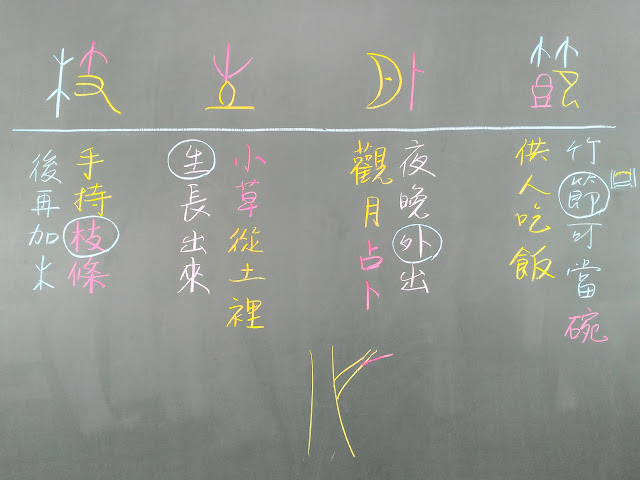 竹節可當碗
供人吃飯
夜晚外出
觀月占卜
小草從土裡
生長出來
手持枝條
後再加木